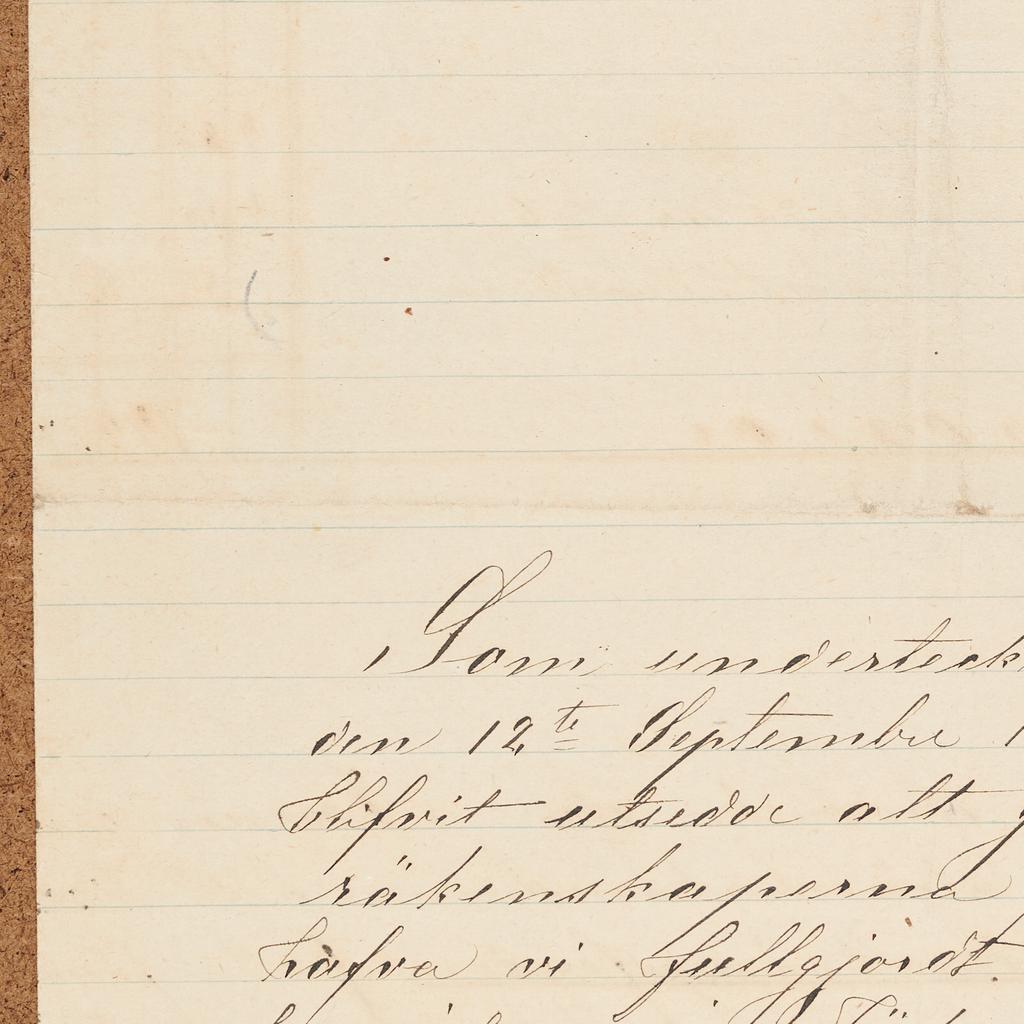 Som underteck
den 12te Septembre 1
Blifvit utsedde att g
räkenskaperna
hafva vi fullgjordt